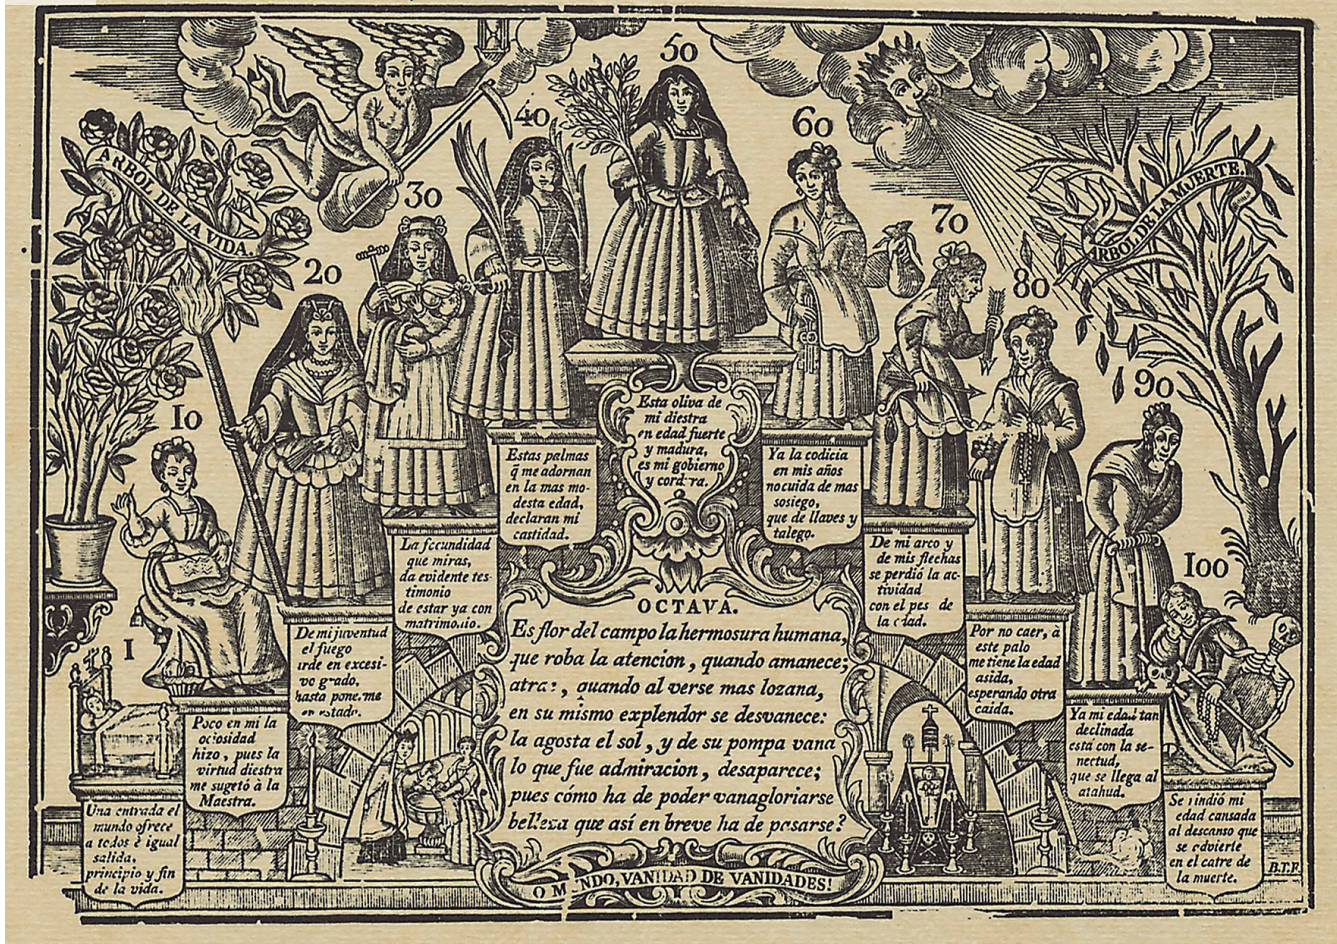 ARBOL DE LA VIDA.
ARBOL DE LA MUERTE.
1
10
20
30
40
50
60
70
80
90
100
Una entrada el
mundo ofrece
a todos è igual
salida,
principio y fin
de la vida.
Poco en mi la
ociosidad
hizo, pues la
virtud diestra
me sugetó à la
Maestra.
De mi juventud
el fuego
arde en excesi-
vo grado,
hasta ponerme
en estado.
La fecundidad
que miras,
da evidente tes-
timonio
de estar ya con
matrimonio.
Estas palmas
q̃ me adornan
en la mas mo-
desta edad,
declaran mi
castidad.
Esta oliva de
mi diestra
en edad fuerte
y madura,
es mi gobierno
y cordura.
Ya la codicia
en mis años
no cuida de mas
sosiego,
que de llaves y
talego.
De mi arco y
de mis flechas
se perdió la ac-
tividad
con el pes de
la edad.
Por no caer, à
este palo
me tiene la edad
asida,
esperando otra
caida.
Ya mi edad tan
declinada
está con la se-
nectud,
que se llega al
atahud.
Se rindió mi
edad cansada
al descanso que
se advierte
en el catre de
la muerte.
OCTAVA.
Es flor del campo la hermosura humana,
que roba la atencion, quando amanece;
atrae, quando al verse mas lozana,
en su mismo explendor se desvanece:
la agosta el sol, y de su pompa vana
lo que fue admiracion, desaparece;
pues cómo ha de poder vanagloriarse
belleza que así en breve ha de pasarse?
O MUNDO, VANIDAD DE VANIDADES!
B.T.F.